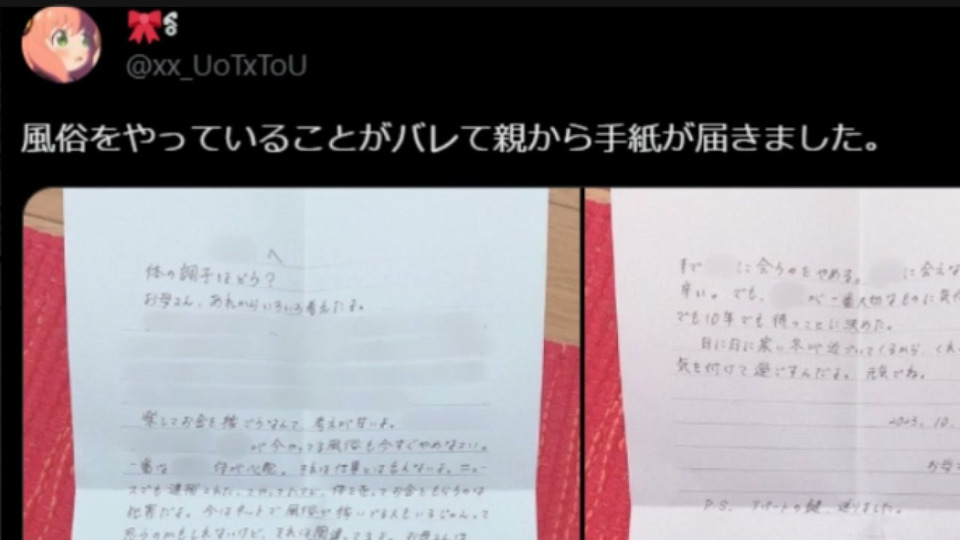 @xx_UoTxToU
風俗をやっていることがバレて親から手紙が届きました。
へ
体の調子はどう?
お母さん、あれからいろいろ考えたよ。
楽してお金を稼ごうなんて、考えが甘いよ。
が今やってる風俗も今すぐやめなさい。
一番は 体が心配。それは仕事とは言えないよ。ニュー
スでも逮捕された、ってやってたけど、体を売ってお金をもらうのは
犯罪だよ。今はネットで風俗で稼いでる人もいるじゃんって
思うのかもしれないけど、それは間違ってるよ。お母さんは
まで に会うのをやめる。 に会えな
辛い。でも、 が一番大切なものに気付
でも10年でも待つことに決めた。
日に日に寒い冬が近づいてくるから、くれ
気を付けて過ごすんだよ。元気でね。
10.
お母
P.S. アパートの鍵、送りました。